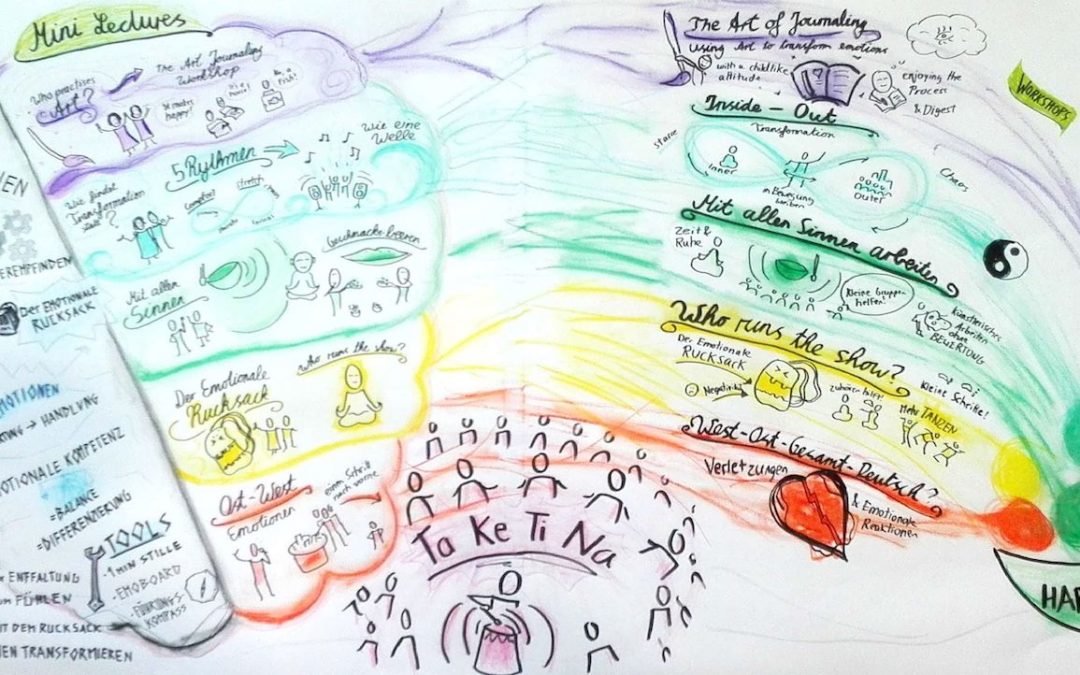 Mini Lectures
Who practises
Art?
The Art Journaling
Workshop
It makes
happy!
5 Rythmen
Wie eine
Welle
Wie findet
Transformation
statt?
stretch
Mit allen
Sinnen
Geschmacks-beeren
Der Emotionale
Rucksack
Who runs the show?
Ost-West
Emotionen
einen Schritt
nach vorne
DER EMOTIONALE
RUCKSACK
HANDLUNG
KOMPETENZ
=BALANCE
=DIFFERENZIERUNG
TOOLS
-1 MIN STILLE
-EMOBOARD
-FÜHRUNGS-
KOMPASS
FÜHLEN
DEM RUCKSACK
TRANSFORMIEREN
Ta Ke Ti Na
The Art of Journaling
using Art to transform emotions
with a childlike
attitude
enjoying the
Process
& Digest
WORKSHOPS
Inside - Out
Transformation
Starre
inner
in Bewegung
bleiben
outer
Chaos
Mit allen Sinnen arbeiten
Zeit &
Ruhe
Kleine Gruppen
helfen!
Künstlerisches
Arbeiten
ohne
BEWERTUNG
Who runs the show?
Der Emotionale
RUCKSACK
Negativität
zuhören hilft!
Kleine Schritte!
Mehr TANZEN
West-Ost-Gesamt-Deutsch?
Verletzungen
& Emotionale
Reaktionen